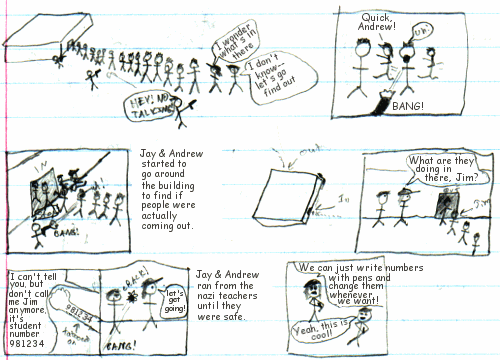 I wonder
what's in
there
I don't
know--
let's go
find out
HEY! NO
TALKING
Quick,
Andrew!
Uh.
BANG!
IN
BANG!
Jay & Andrew
started to
go around
the building
to find if
people were
actually
coming out.
In
What are they
doing in
there, Jim?
OUT
Jim
I can't tell
you, but
don't call
me Jim
anymore,
it's
student
number
981234
981234
CRACK!
let's
get
going!
BANG!
Jay & Andrew
ran from the
nazi teachers
until they
were safe.
We can just write numbers
with pens and
change them
whenever
we want!
Yeah, this is
cool!